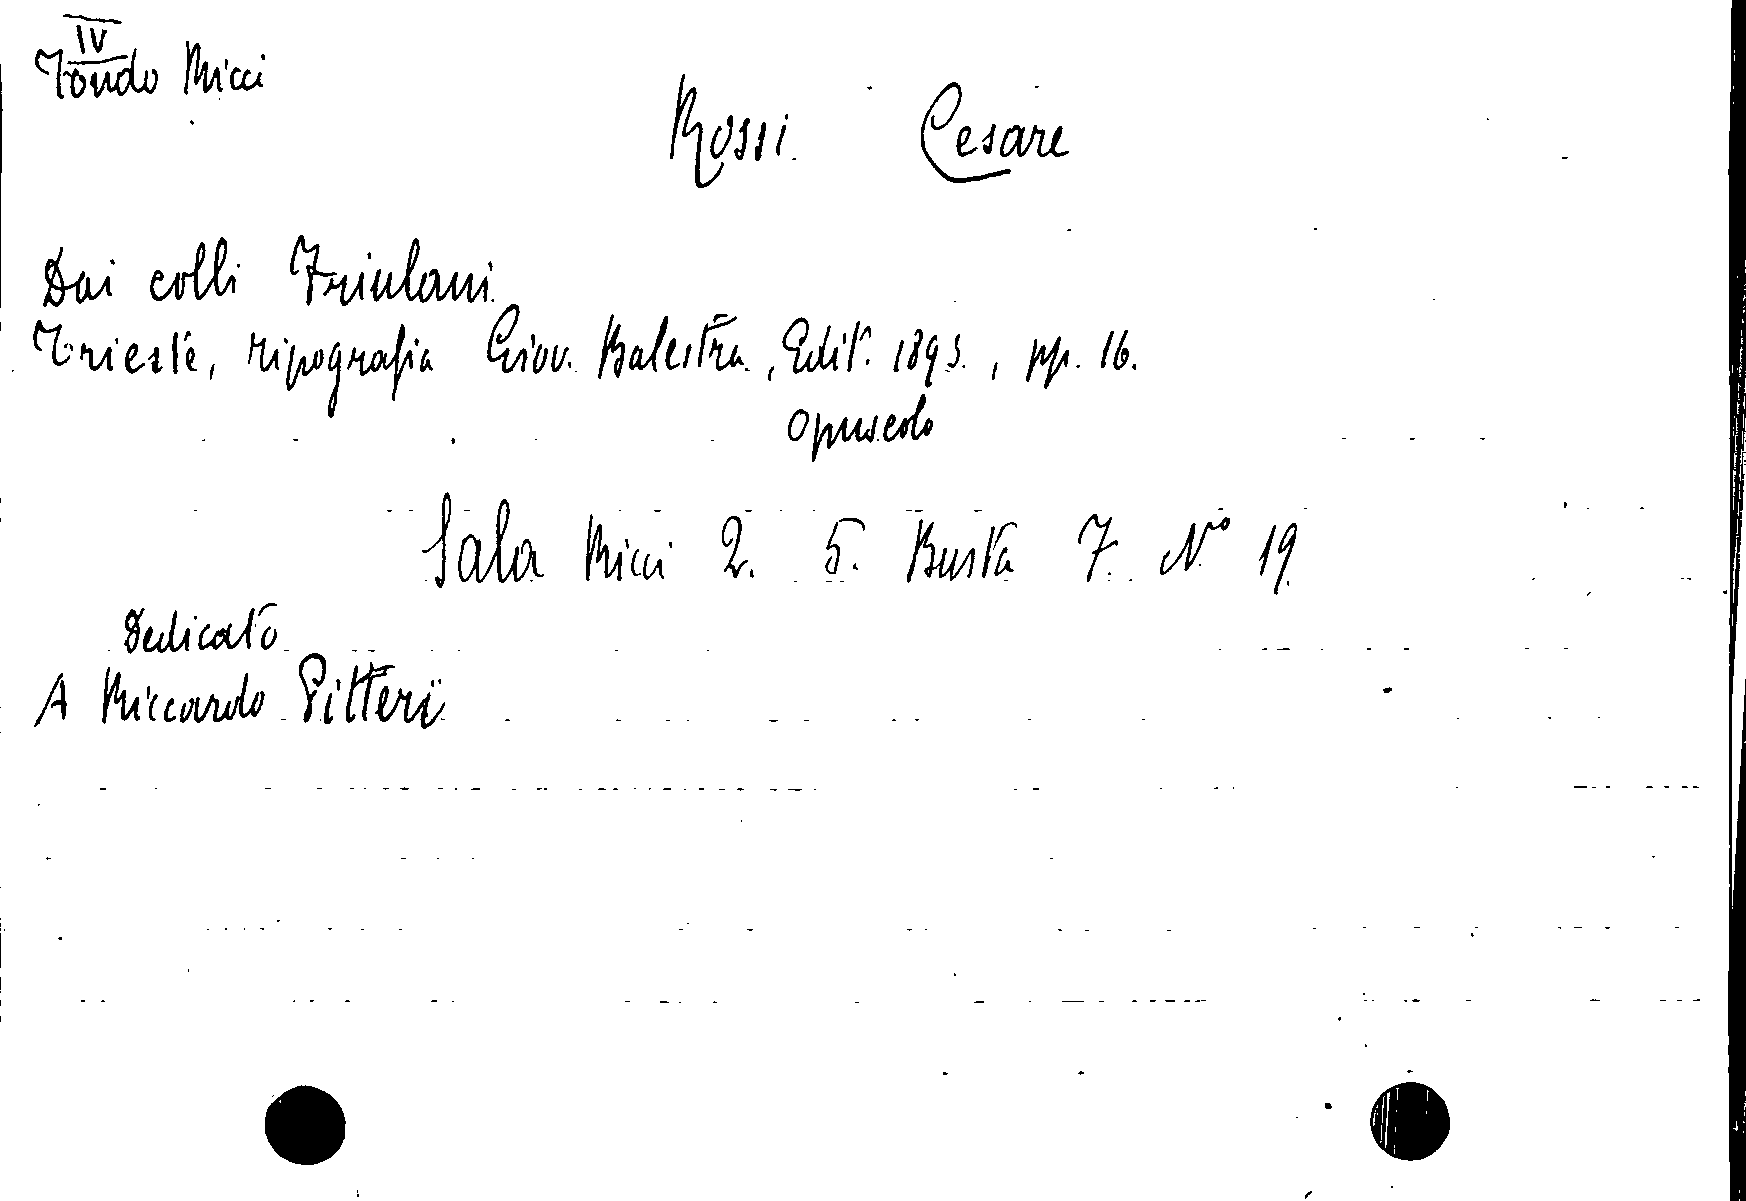 IV
Fondo Ricci
Rossi Cesare
Dai colli Friulani
Trieste, tipografia Giov. Balestra, Edit. 1893., pp. 16.
opuscolo
Sala Ricci 2. 5. Busta 7. N° 19
Dedicato
A Riccardo Pitteri